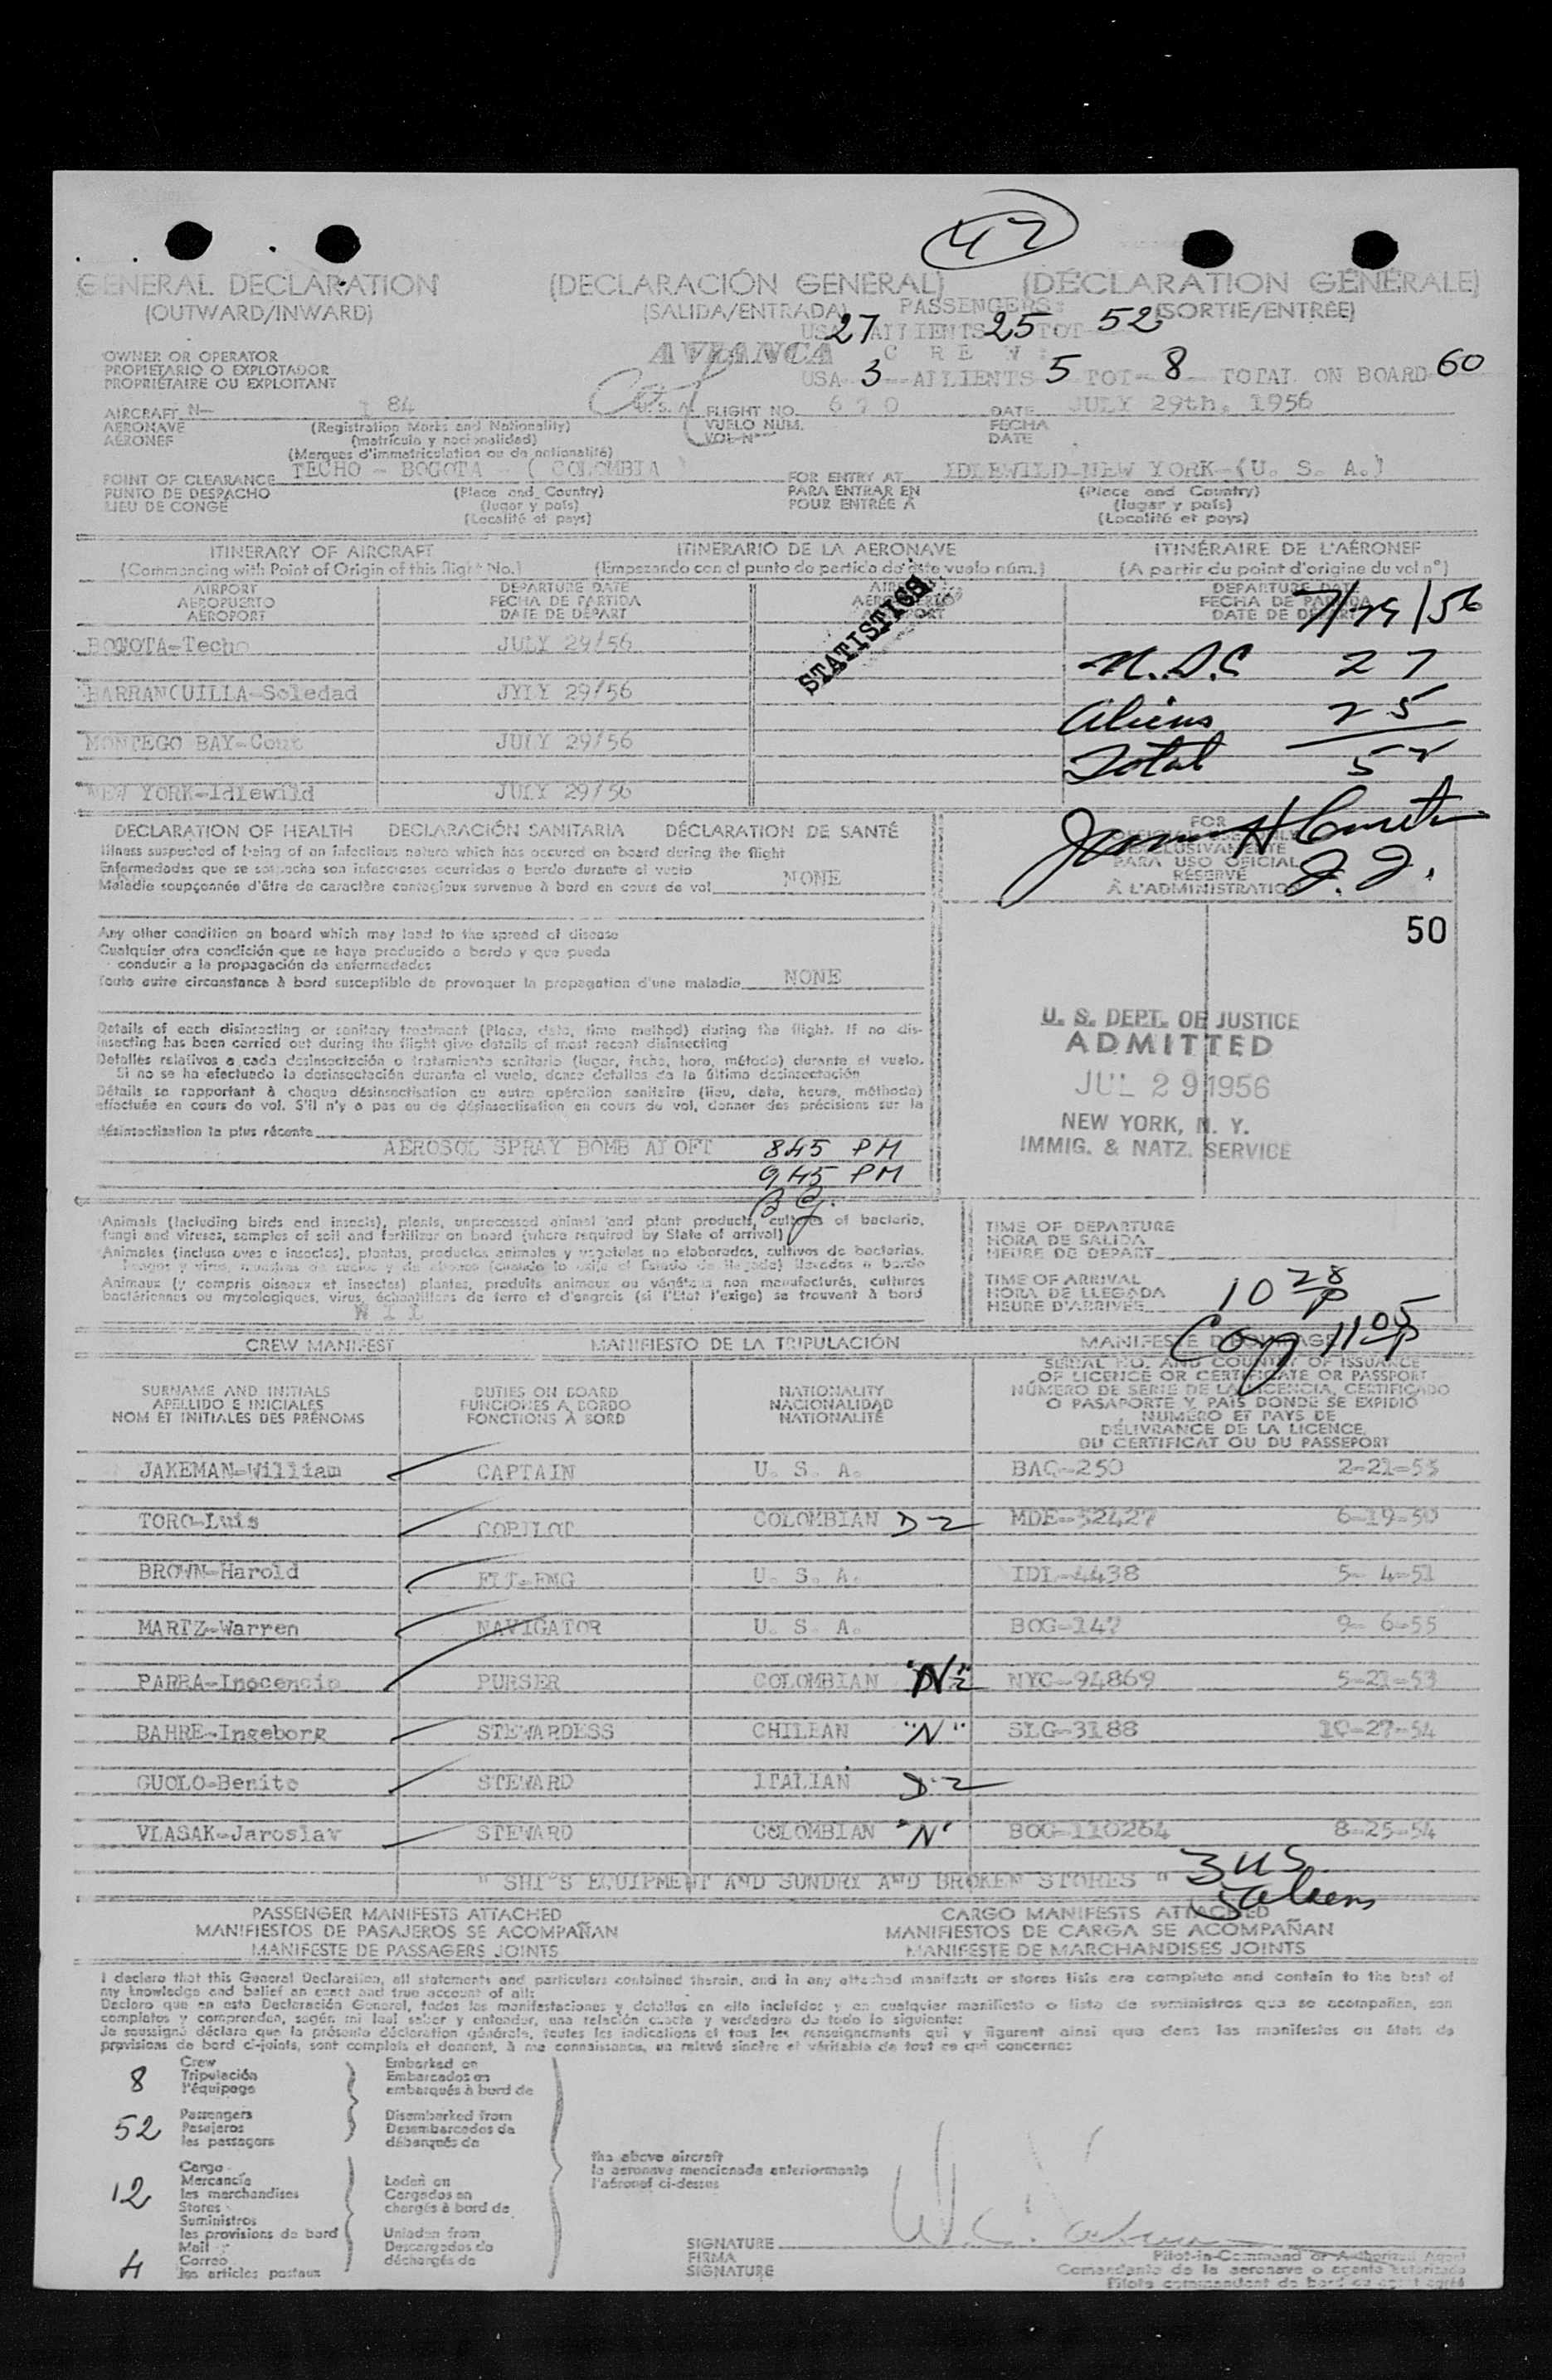 42
GENERAL DECLARATION (DECLARACIÓN GENERAL) (DÉCLARATION GÉNÉRALE)
(OUTWARD/INWARD) (SALIDA/ENTRADA) PASSENGERS: (SORTIE/ENTRÉE)
USA 27 ALLIENTS 25 TOT 52
OWNER OR OPERATOR AVIANCA C R E W :
PROPIETARIO O EXPLOTADOR
PROPRIÉTAIRE OU EXPLOITANT
USA 3 ALLIENTS 5 TOT 8 TOTAL ON BOARD 60
AIRCRAFT N— 84 U.S.A. FLIGHT NO. 670 DATE JULY 29th, 1956
AERONAVE (Registration Marks and Nationality) VUELO NÚM. FECHA
AÉRONEF (matrícula y nacionalidad) VOL Nº DATE
(Marques d'immatriculation ou de nationalité)
POINT OF CLEARANCE TECHO - BOGOTA - ( COLOMBIA ) FOR ENTRY AT IDLEWILD-NEW YORK-(U. S. A.)
PUNTO DE DESPACHO (Place and Country) PARA ENTRAR EN (Place and Country)
LIEU DE CONGE (lugar y país) POUR ENTRÉE A (lugar y país)
(Localité et pays) (Localité et pays)
ITINERARY OF AIRCRAFT ITINERARIO DE LA AERONAVE ITINÉRAIRE DE L'AÉRONEF
(Commencing with Point of Origin of this flight No.) (Empezando con el punto de partida de este vuelo núm.) (A partir du point d'origine du vol nº)
AIRPORT DEPARTURE DATE AIRPORT DEPARTURE DATE
AEROPUERTO FECHA DE PARTIDA AEROPUERTO FECHA DE PARTIDA
AÉROPORT DATE DE DÉPART AÉROPORT DATE DE DÉPART
7/29/56
STATISTICS
BOGOTA-Techo JULY 29/56 27
BARRANCUILLA-Soledad JYLY 29/56
Aliens 25
MONTEGO BAY-Cout JULY 29/56
Total 52
NEW YORK-Idlewild JULY 29/56
DECLARATION OF HEALTH DECLARACIÓN SANITARIA DÉCLARATION DE SANTÉ
FOR OFFICIAL USE ONLY
EXCLUSIVAMENTE
PARA USO OFICIAL
RÉSERVÉ
À L'ADMINISTRATION
Illness suspected of being of an infectious nature which has occured on board during the flight
Enfermedades que se sospecha son infecciosas ocurridas a bordo durante el vuelo
Maladie soupçonnée d'être de caractère contagieux survenue à bord en cours de vol NONE
50
Any other condition on board which may lead to the spread of disease
Cualquier otra condición que se haya producido a bordo y que pueda
conducir a la propagación de enfermedades
Toute autre circonstance à bord susceptible de provoquer la propagation d'une maladie NONE
Details of each disinsecting or sanitary treatment (Place, date, time method) during the flight. If no dis-
insecting has been carried out during the flight give details of most recent disinsecting
Detalles relativos a cada desinsectación o tratamiento sanitario (lugar, fecha, hora, método) durante el vuelo.
Si no se ha efectuado la desinsectación durante el vuelo, dense detalles de la última desinsectación
Détails se rapportant à chaque désinsectisation ou autre opération sanitaire (lieu, date, heure, méthode)
effectuée en cours de vol. S'il n'y a pas eu de désinsectisation en cours du vol, donner des précisions sur la
désinsectisation la plus récente
AEROSOL SPRAY BOMB ALOFT 845 PM
945 PM
U. S. DEPT. OF JUSTICE
ADMITTED
JUL 29 1956
NEW YORK, N. Y.
IMMIG. & NATZ. SERVICE
Animals (Including birds and insects), plants, unprocessed animal and plant products, cultures of bacteria,
fungi and viruses, samples of soil and fertilizer on board (where required by State of arrival)
Animales (incluso aves e insectos), plantas, productos animales y vegetales no elaborados, cultivos de bacterias,
hongos y virus, muestras de suelos y de abonos (cuando lo exija el Estado de llegada) llevados a bordo
Animaux (y compris oiseaux et insectes) plantes, produits animaux ou végétaux non manufacturés, cultures
bactériennes ou mycologiques, virus, échantillons de terre et d'engrais (si l'État l'exige) se trouvant à bord
N I L
TIME OF DEPARTURE
HORA DE SALIDA
HEURE DE DEPART
TIME OF ARRIVAL
HORA DE LLEGADA
HEURE D'ARRIVÉE
10 28 P
11 05 P
CREW MANIFEST MANIFIESTO DE LA TRIPULACIÓN MANIFESTE D'ÉQUIPAGE
SURNAME AND INITIALS DUTIES ON BOARD NATIONALITY SERIAL NO. AND COUNTRY OF ISSUANCE
APELLIDO E INICIALES FUNCIONES A BORDO NACIONALIDAD OF LICENCE OR CERTIFICATE OR PASSPORT
NOM ET INITIALES DES PRÉNOMS FONCTIONS À BORD NATIONALITÉ NÚMERO DE SERIE DE LA LICENCIA, CERTIFICADO
O PASAPORTE Y PAÍS DONDE SE EXPIDIÓ
NUMÉRO ET PAYS DE
DÉLIVRANCE DE LA LICENCE,
DU CERTIFICAT OU DU PASSEPORT
JAKEMAN-William CAPTAIN U. S. A. BAQ-250 2-21-55
TORO-Luis COPILOT COLOMBIAN D-2 MDE-32427 6-19-50
BROWN-Harold FLT-ENG U. S. A. IDL-4438 5- 4-51
MARTZ-Warren NAVIGATOR U. S. A. BOG-147 9- 6-55
PARRA-Inocencio PURSER COLOMBIAN NYC-94869 5-21-53
BAHRE-Ingeborg STEWARDESS CHILEAN "N" SLG-3188 10-27-54
GUOLO-Benito STEWARD ITALIAN D-2
VLASAK-Jaroslav STEWARD COLOMBIAN "N" BOG-110264 8-25-54
" SHI'S EQUIPMENT AND SUNDRY AND BROKEN STORES " 3 US
5 aliens
PASSENGER MANIFESTS ATTACHED CARGO MANIFESTS ATTACHED
MANIFIESTOS DE PASAJEROS SE ACOMPAÑAN MANIFIESTOS DE CARGA SE ACOMPAÑAN
MANIFESTE DE PASSAGERS JOINTS MANIFESTE DE MARCHANDISES JOINTS
I declare that this General Declaration, all statements and particulars contained therein, and in any attached manifests or stores lists are complete and contain to the best of
my knowledge and belief an exact and true account of all:
Declaro que en esta Declaración General, todas las manifestaciones y detalles en ella incluídos y en cualquier manifiesto o lista de suministros que se acompañen, son
completos y comprenden, según mi leal saber y entender, una relación exacta y verdadera de todo lo siguiente:
Je soussigné déclare que la présente déclaration générale, toutes les indications et tous les renseignements qui y figurent ainsi que dans les manifestes ou états de
provisions de bord ci-joints, sont complets et donnent, à ma connaissance, un relevé sincère et véritable de tout ce qui concerne:
8 Crew Embarked on
Tripulación Embarcados en
l'équipage embarqués à bord de
52 Passengers Disembarked from
Pasajeros Desembarcados de
les passagers débarqués de
Cargo
12 Mercancía Laden on
les marchandises Cargados en
Stores chargés à bord de
Suministros
les provisions de bord Unladen from
Mail Descargados de
4 Correo déchargés de
les articles postaux
the above aircraft
la aeronave mencionada anteriormente
l'aéronef ci-dessus
SIGNATURE
FIRMA
SIGNATURE
Pilot-in-Command or Authorized Agent
Comandante de la aeronave o agente autorizado
Pilote commandant de bord ou agent agréé